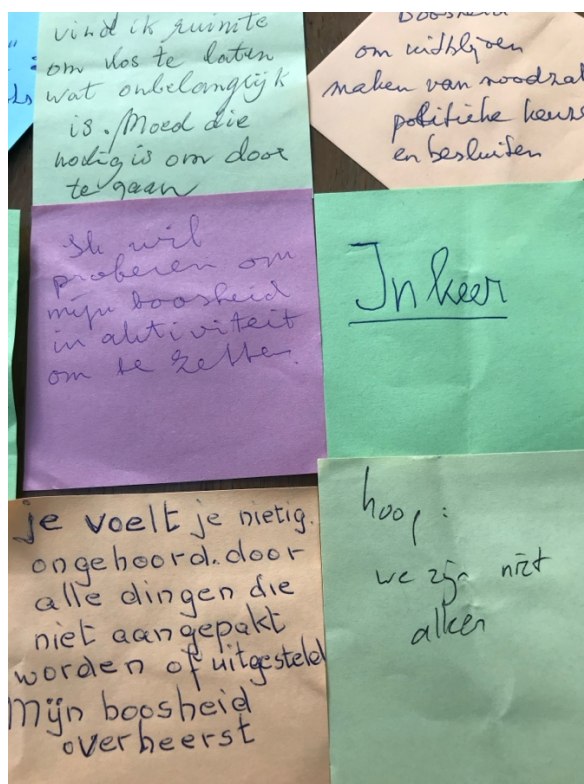 vind ik ruimte
om los te laten
wat onbelangrijk
is. Moed die
nodig is om door
te gaan
Boosheid
om uitblijven
maken van noodzak
politieke keus
en besluiten
Ik wil
proberen om
mijn boosheid
in aktiviteit
om te zetten.
Inkeer
je voelt je nietig.
ongehoord. door
alle dingen die
niet aangepakt
worden of uitgesteld
Mijn boosheid
overheerst
hoop:
we zijn niet
alleen